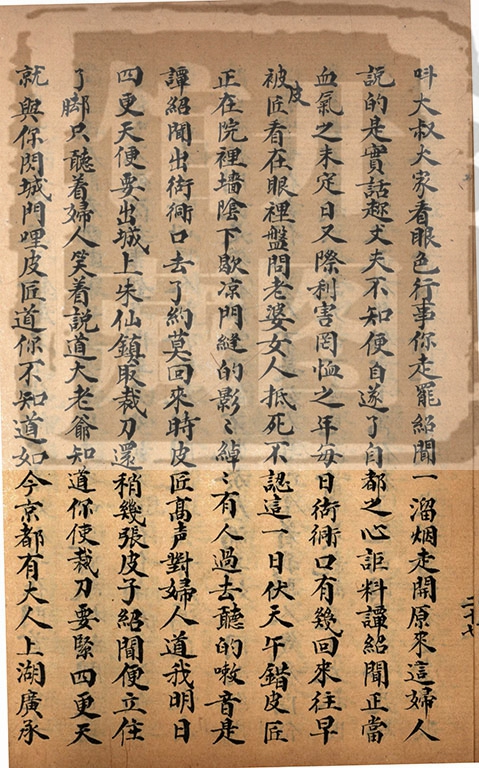 呌大叔大家看眼色行事你走罷紹聞一溜烟走開原來這婦人
説的是實話趂丈夫不知便自遂了自都之心詎料譚紹聞正當
血氣之未定日又際利害罔恤之年每日街衕口有幾回來往早
被皮匠看在眼裡盤問老婆女人抵死不認這一日伏天午錯皮匠
正在院裡墻陰下歇凉門縫的影〻綽〻有人過去聽的嗽音是
譚紹聞出街衕口去了約莫回來時皮匠髙声對婦人道我明日
四更天便要出城上朱仙鎮取裁刀還稍幾張皮子紹聞便立住
了脚只聽着婦人笑着説道大老爺知道你使裁刀要緊四更天
就與你閃城門哩皮匠道你不知道如今京都有大人上湖廣承
二十七